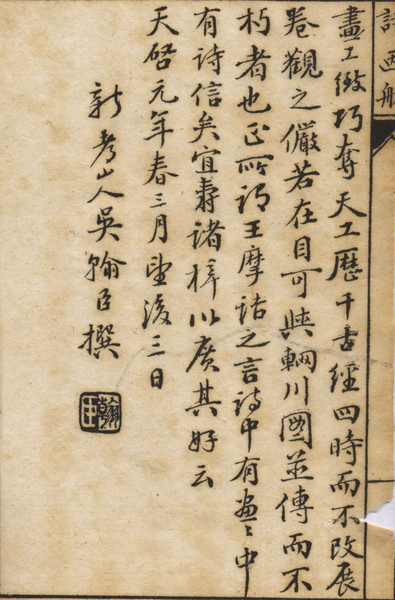 詩画舫
畫工緻巧奪天工歷千古經四時而不改展
卷觀之儼若在目可與輞川圖並傳而不
朽者也正所謂王摩詰之言詩中有畫〻中
有詩信矣宜壽諸梓以廣其好云
天啓元年春三月望後三日
新山人吳翰臣撰
翰臣